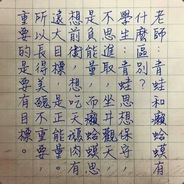 老師：青蛙和癩蛤蟆有
什麼區別？
學生：青蛙思想保守，
不思進取，坐井觀天，
是負能量，而癩蛤蟆思
想前衛，想吃天鵝肉有
遠大目標，是正能量。
所以長得美醜不重要，
重要的是目標。